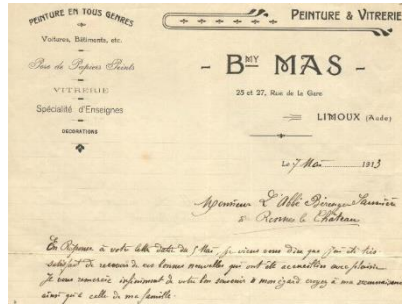 PEINTURE EN TOUS GENRES
Voitures, Bâtiments, etc.
Pose de Papiers Peints
VITRERIE
Spécialité d'Enseignes
DÉCORATIONS
PEINTURE & VITRERIE
- BMY MAS -
25 et 27, Rue de la Gare
LIMOUX (Aude)
Le 7 Mai 1913
Monsieur L'Abbé Bérenger Saunière
à Rennes le Château
En Réponse à votre lettre datée du 5 Mai, je viens vous dire que j'ai été très
satisfait de recevoir de vos bonnes nouvelles qui ont été accueillies avec plaisir.
Je vous remercie infiniment de votre bon souvenir à mon égard croyez à ma
ainsi qu'à celle de ma famille.